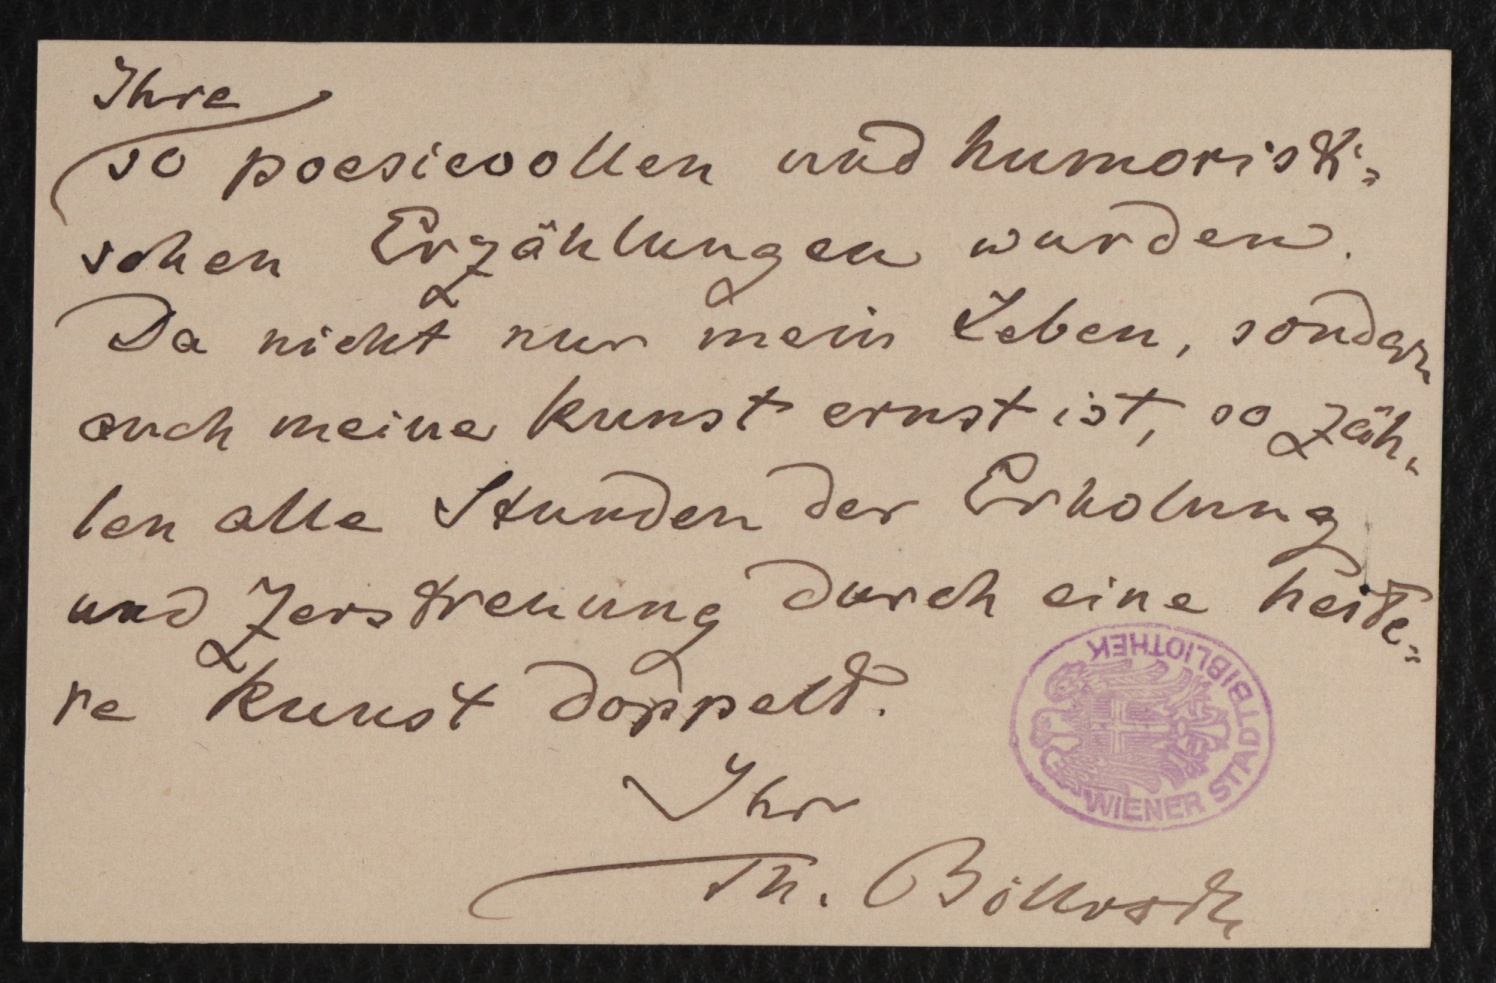 Ihre
so poesievollen und humoristi=
schen Erzählungen wurden.
Da nicht nur mein Leben, sondern
auch meine Kunst ernst ist, so zäh-
len alle Stunden der Erholung
und Zerstreuung durch eine heite=
re Kunst doppelt.
Ihr
Th. Billroth
WIENER STADTBIBLIOTHEK